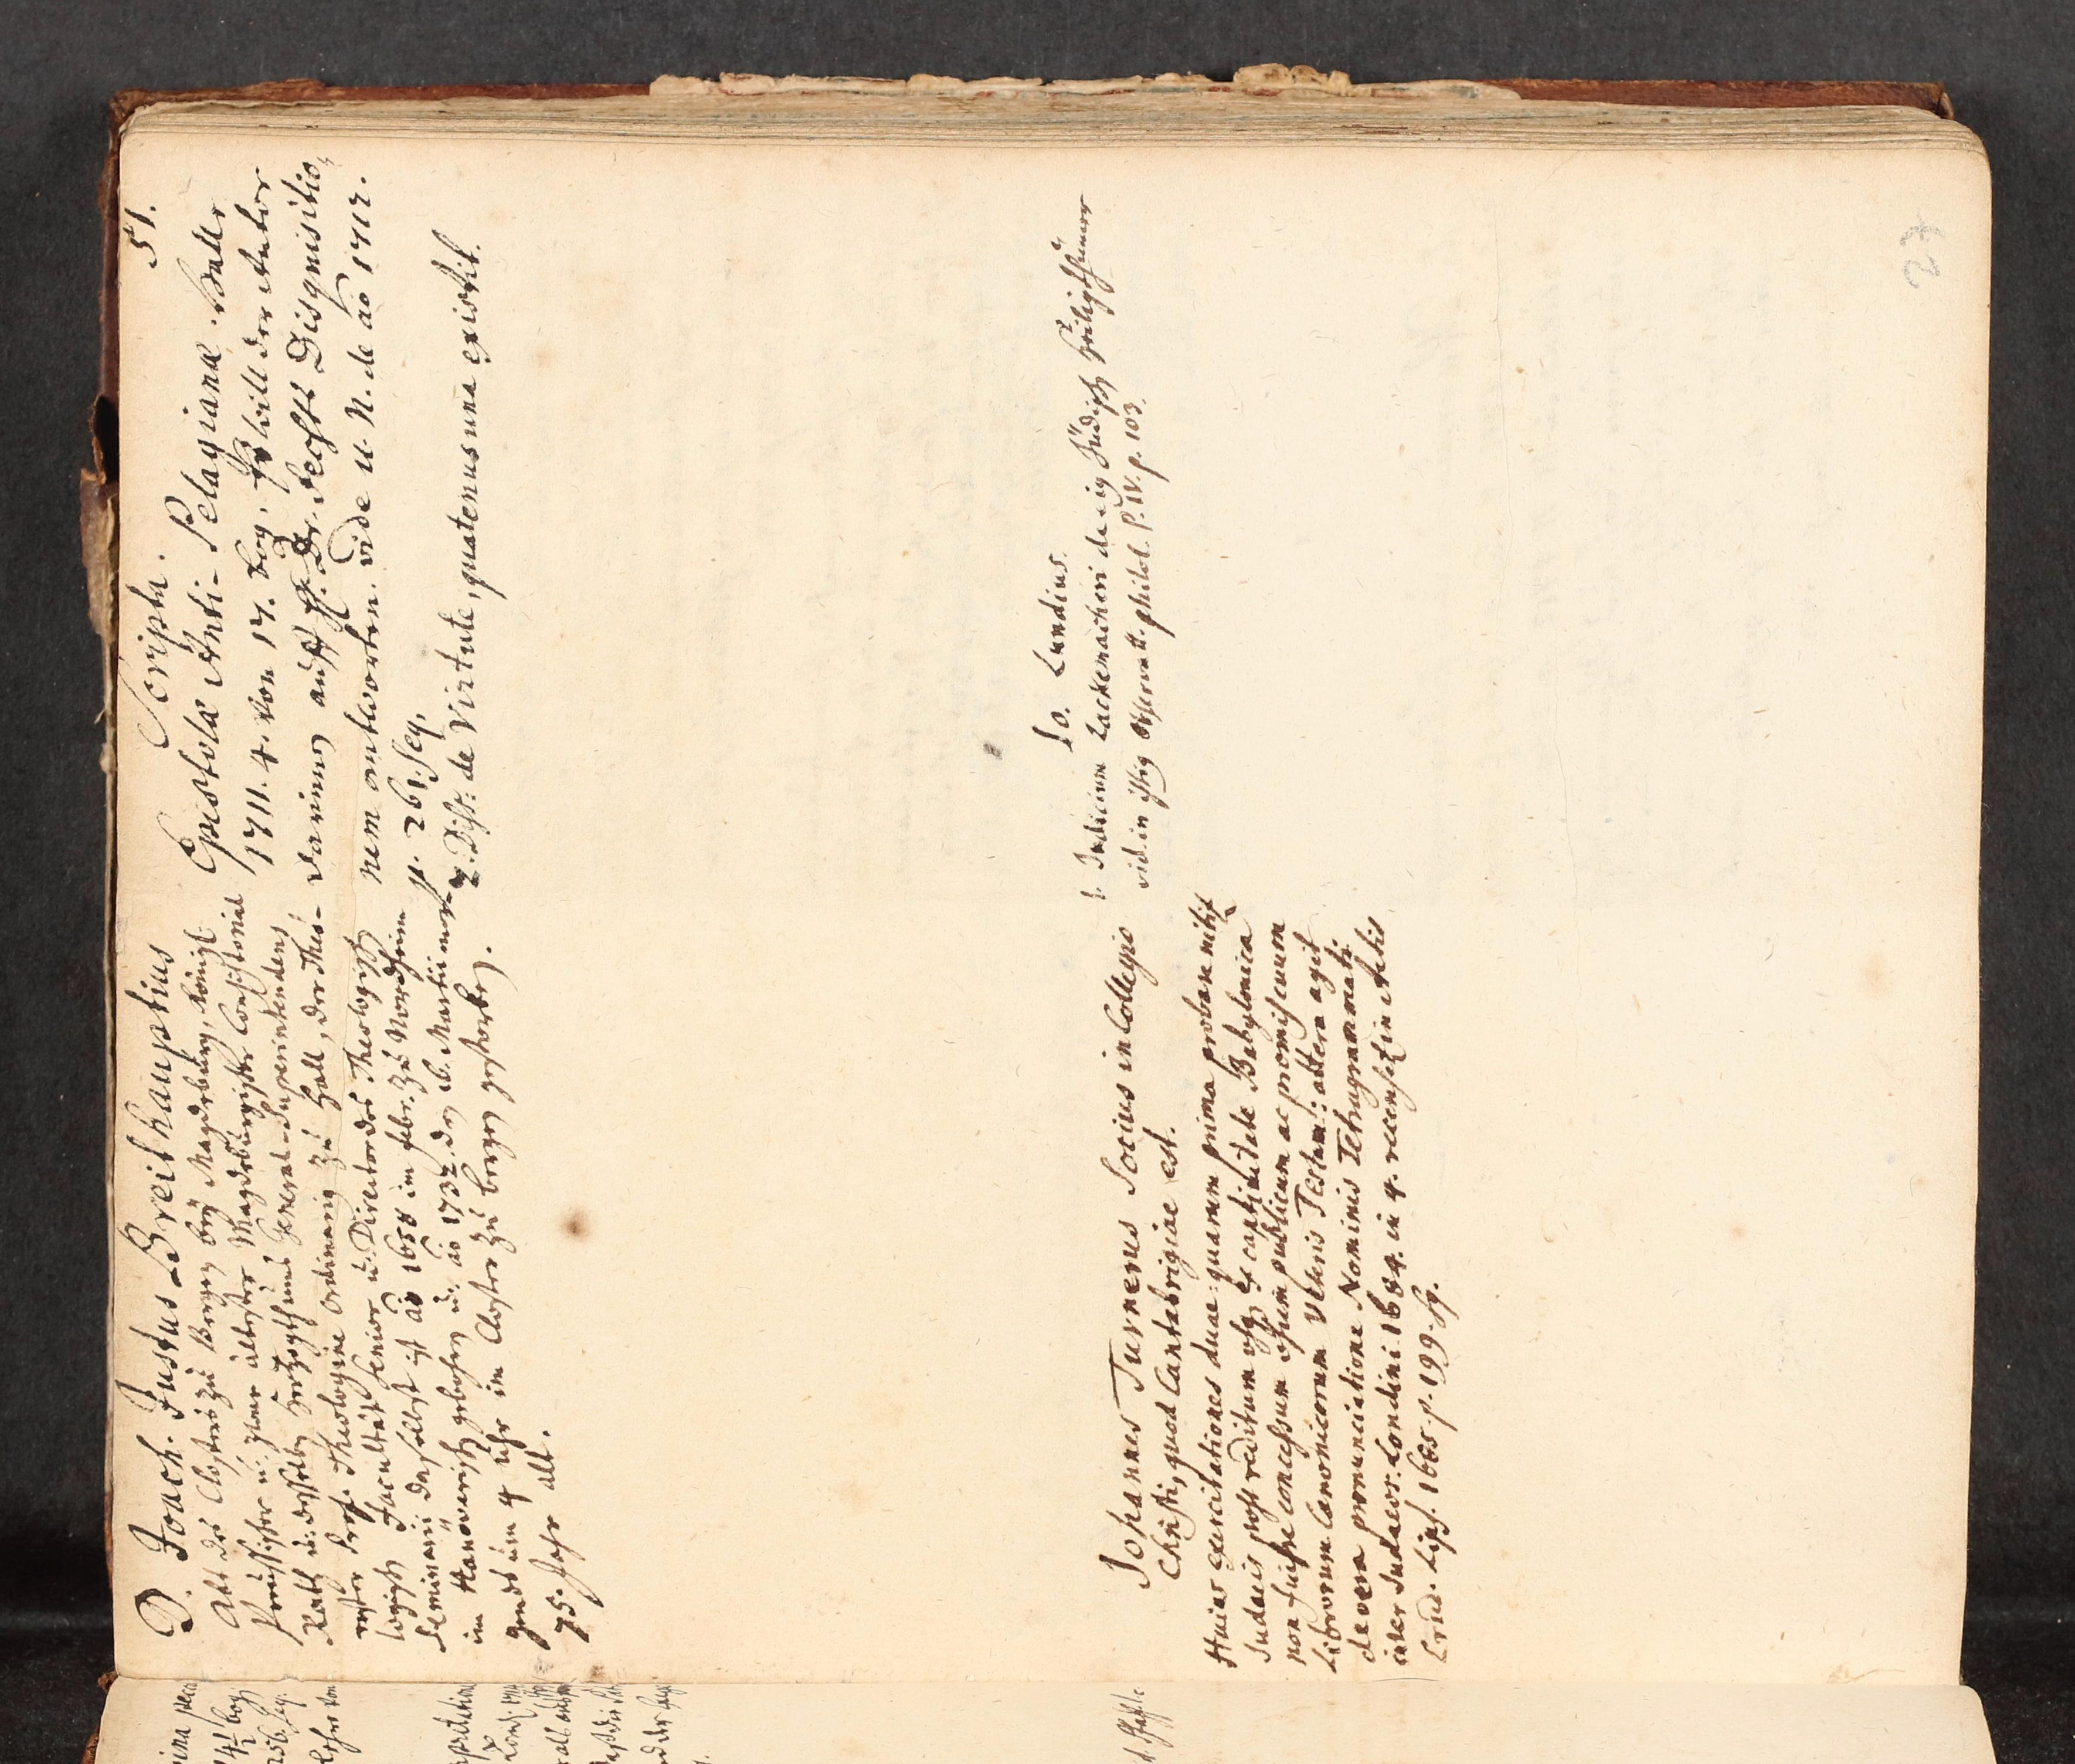 51.
D. Joach. Justus Breithauptius
Abt des Closters zu Bergen bey Magdeburg, Königl.
Preussischer u. zwar ältester Magdeburgischer Consistorial
Rath u. desselben Herzogthums General-Superintendens
Prof. Theologiae Ordinarius zu Hall, der Theo-
logischen Facultät Senior u. Director des Theologischen
Seminarii daselbst ist aō 1658 im Febr. zu Nordheim
im Hanöverischen gebohren u. aō 1732. den 16. Martii
um 4 Uhr im Closter zu Bergen gestorben.
75. Jahr alt.
Scripta.
Epistolae Anti-Pelagianae. Halle
1711. 4. von 17. Bog. Es will der Autor
darinnen auff H. Dr. Fechts Disquisitio-
nem antworten. vide U. N. de aō 1712.
p. 261. seq.
2. Diss: de Virtute, quatenus una existit.
Jo. Lundius.
1. Judicium Zackemacheri de ej Jüdisch Heiligthümer
vid. in Observatt. philol. P. IV. p. 103.
Johannes Turnerus Socius in Collegio
Christi, quod Cantabrigiae est.
Huius exercitationes duae: quarum prima probare
Judaeis post reditum captivitate Babylonica
non fuisse concessum usum publicum ac promiscuum
Librorum Canonicorum Veteris Testam: altera agit
de vera pronunciatione Nominis Tetragrammati
inter Judaeos. Londini 1684. in 4. recensef in Actis
Erud. Lips. 1685 p. 199. sq.
27